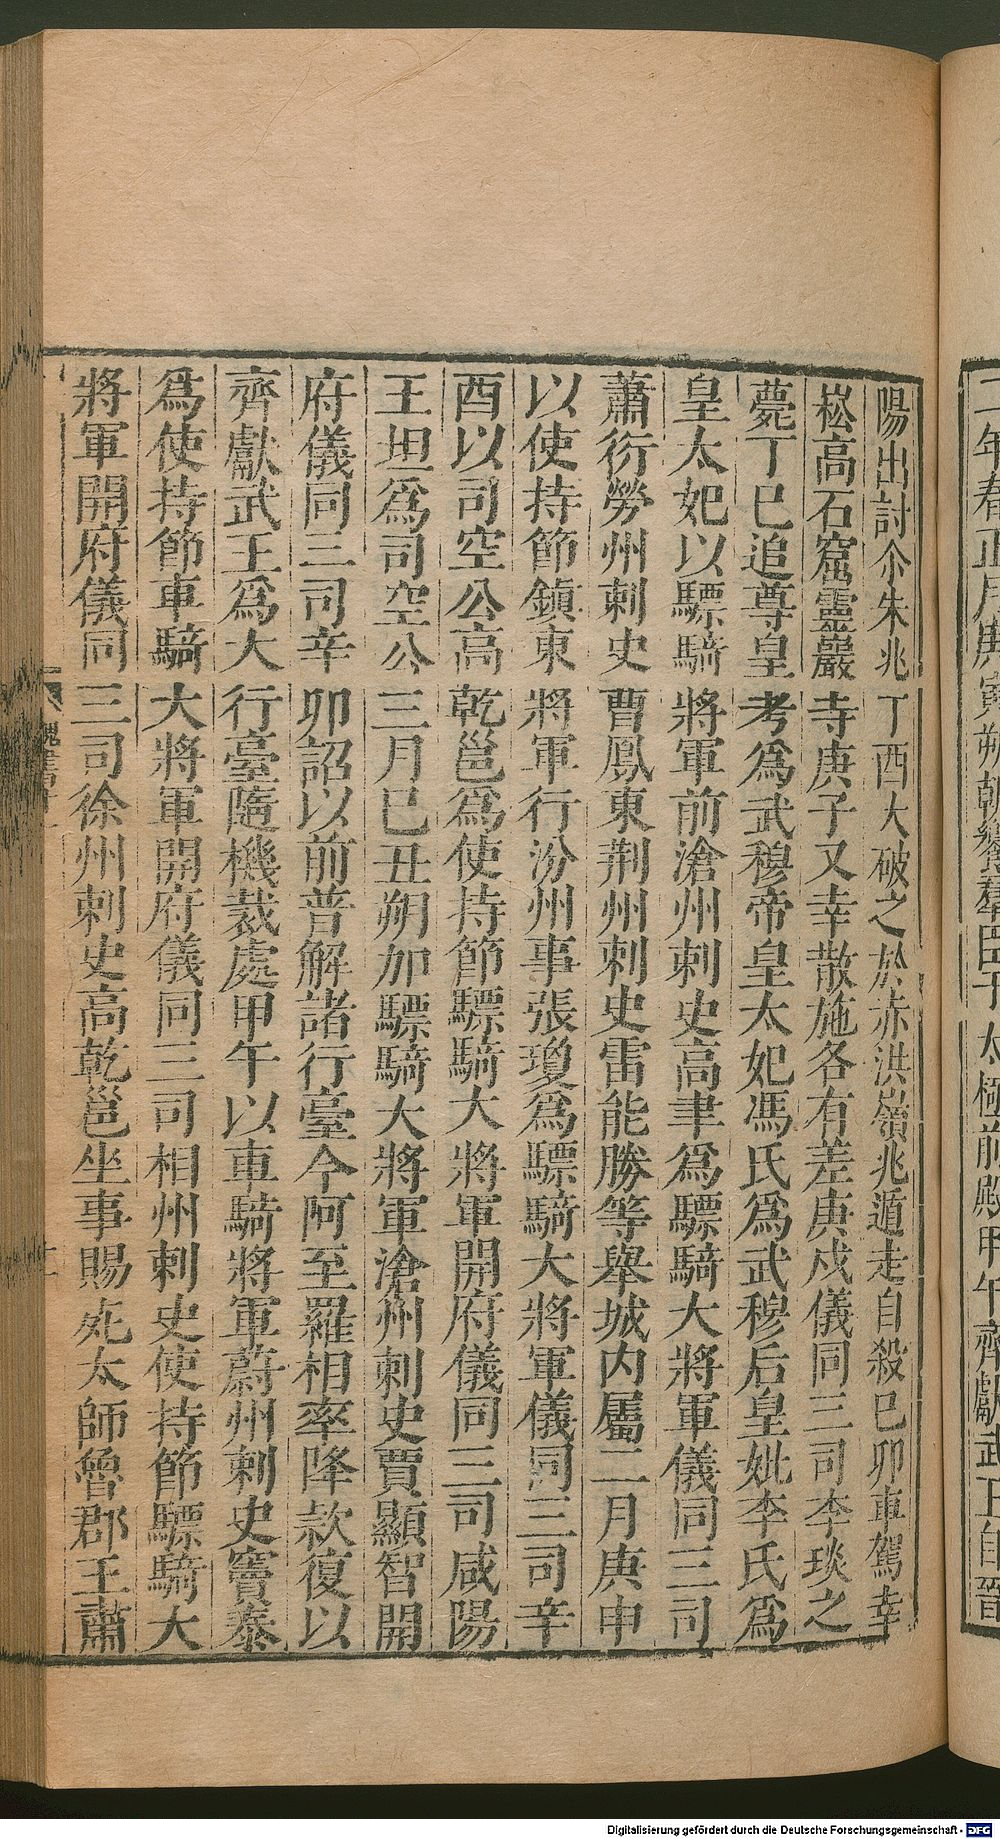 二年春正月庚寅朔朝饗羣臣于太極前殿甲午齊獻武王自晉
陽出討尒朱兆丁酉大破之於赤洪嶺兆遁走自殺巳卯車駕幸
崧高石窟靈巖寺庚子又幸散施各有差庚戍儀同三司李琰之
薨丁巳追尊皇考爲武穆帝皇太妃馮氏爲武穆后皇妣李氏爲
皇太妃以驃騎將軍前滄州刺史高聿爲驃騎大將軍儀同三司
蕭衍勞州刺史曹鳳東荆州刺史雷能勝等舉城内屬二月庚申
以使持節鎭東將軍行汾州事張瓊爲驃騎大將軍儀同三司辛
酉以司空公高乾邕爲使持節驃騎大將軍開府儀同三司咸陽
王坦爲司空公三月巳丑朔加驃騎大將軍滄州刺史賈顯智開
府儀同三司辛卯詔以前普解諸行臺今阿至羅相率降款復以
齊獻武王爲大行臺隨機裁處甲午以車騎將軍蔚州刺史竇泰
爲使持節車騎大將軍開府儀同三司相州刺史使持節驃騎大
將軍開府儀同三司徐州刺史高乾邕坐事賜死太師魯郡王肅
魏書
Digitalisierung gefördert durch die Deutsche Forschungsgemeinschaft - DFG